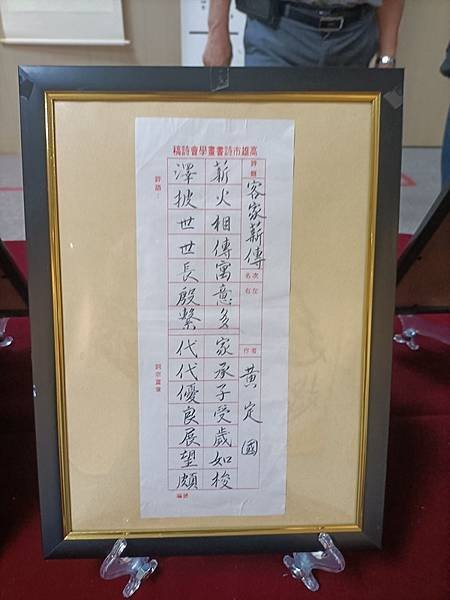 高雄市詩書畫學會詩稿
詩題
客家薪傳
名次
右左
作者
黃定國
薪火相傳寓意多家承子受歲如梭
澤披世世長殷繫代代優良展望頗
評語：